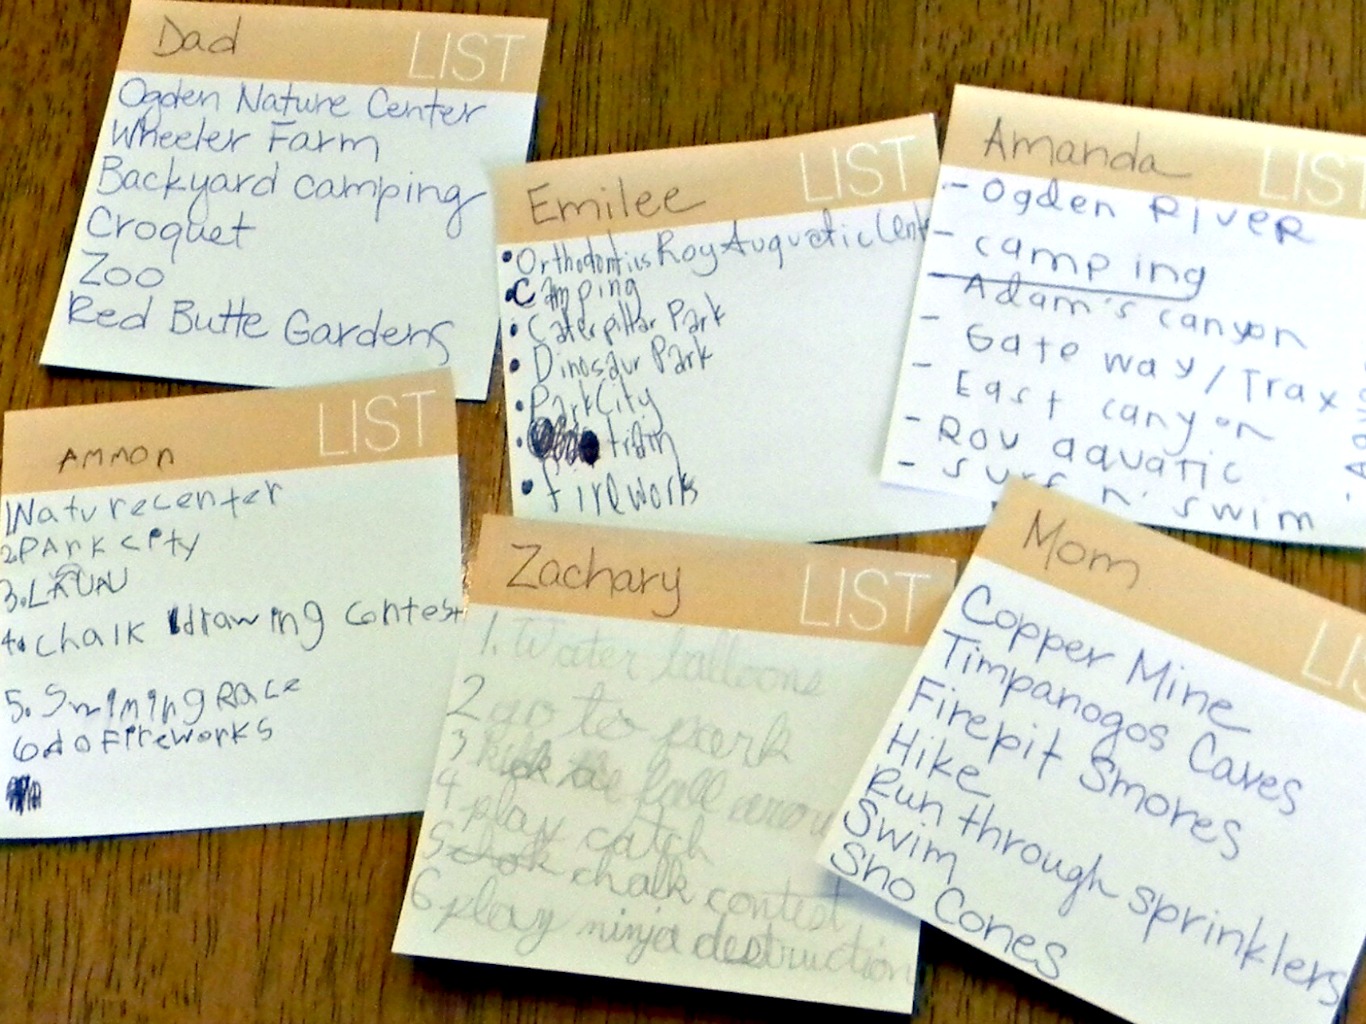 Dad LIST
Ogden Nature Center
Wheeler Farm
Backyard camping
Croquet
Zoo
Red Butte Gardens
Emilee LIST
• Orthodontics Roy Auquatic Cent
• Camping
• Caterpillar Park
• Dinosaur Park
• Park City
• train
• fireworks
Amanda LIST
- Ogden River
- camping
- Adam's canyon
- Gate way/Trax
- East canyon
- Roy aquatic
- surf n' swim
AMMON LIST
1 Nature center
2 PArk city
3.
4. chalk drawing contest
5. Swiming Race
6 do fireworks
Zachary LIST
1. Water balloons
2 go to park
3 kick the ball aroun
4 play catch
5 chalk contest
6 play ninja destruction
Mom LIS
Copper Mine
Timpanogos Caves
Firepit Smores
Hike
Run through sprinklers
Swim
Sno Cones